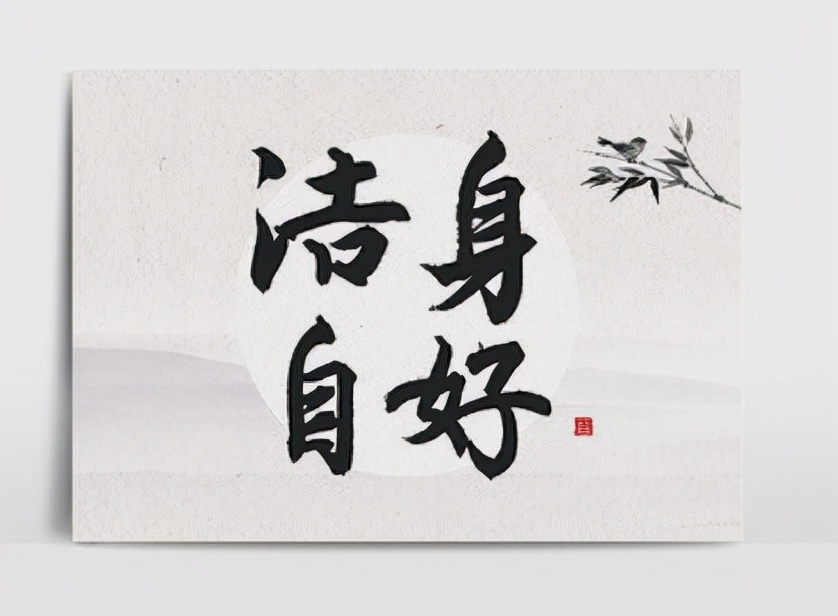 洁身
自好